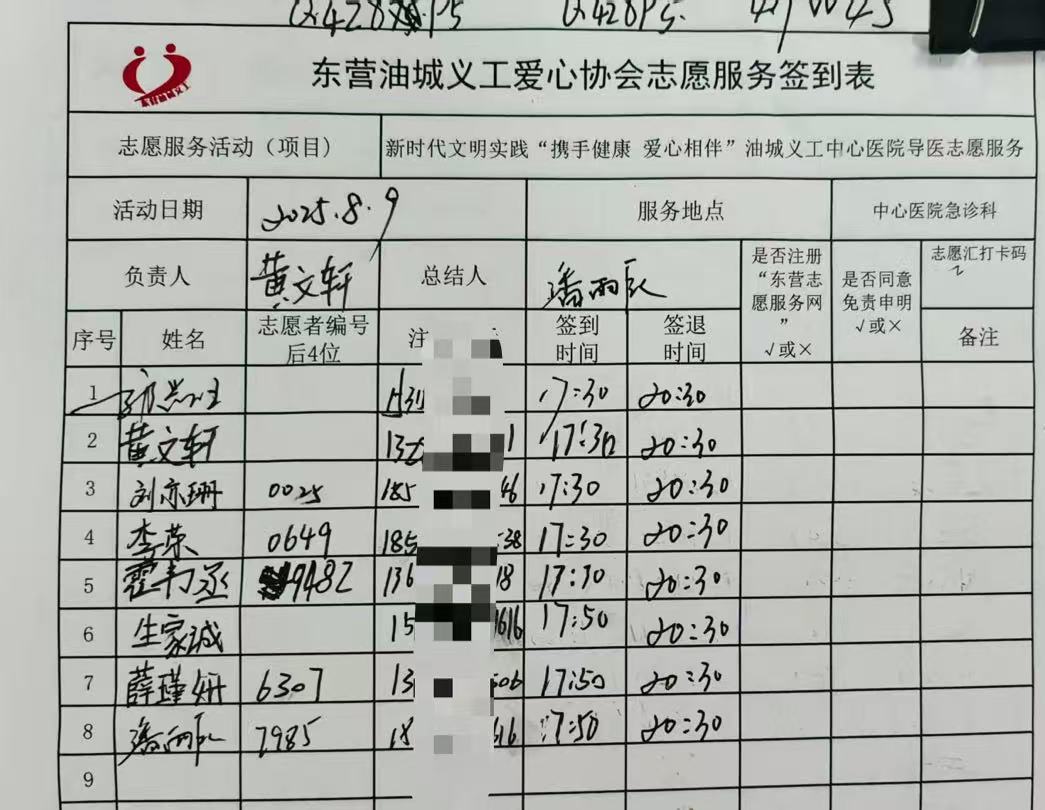 东营油城义工爱心协会志愿服务签到表
志愿服务活动（项目） 新时代文明实践“携手健康 爱心相伴”油城义工中心医院导医志愿服务
活动日期 2025.8.9 服务地点 中心医院急诊科
负责人 黄文轩 总结人 潘雨辰 是否注册“东营志愿服务网” √或× 是否同意免责申明 √或× 志愿汇打卡码
序号 姓名 志愿者编号后4位 注 签到时间 签退时间 备注
1 17:30 20:30
2 黄文轩 1 17:30 20:30
3 刘亦珊 0025 185 46 17:30 20:30
4 李荣 0649 185 38 17:30 20:30
5 9482 136 18 17:30 20:30
6 生家诚 15 1616 17:50 20:30
7 薛瑾妍 6307 13 506 17:50 20:30
8 潘雨辰 7985 18 616 17:50 20:30
9